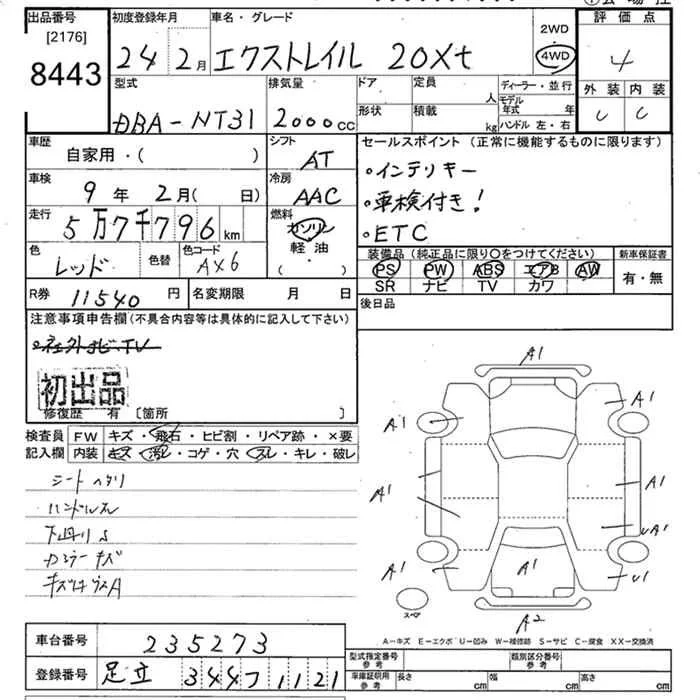 出品番号
[2176]
8443
初度登録年月
24 2月
車名・グレード
エクストレイル 20Xt
2WD
4WD
評価点
4
外装 内装
C C
型式
DBA-NT31
排気量
2000cc
ドア
形状
定員 人
積載 kg
ディーラー・並行
モデル年式 年
ハンドル 左・右
車歴
自家用・( )
シフト
AT
車検
9年 2月( 日)
冷房
AAC
走行
5万7千796km
燃料
ガソリン
軽油
・( )
色
レッド
色替
色コード
AX6
セールスポイント(正常に機能するものに限ります)
・インテリキー
・車検付き!
・ETC
装備品(純正品に限り○をつけてください)
新車保証書
PS PW ABS エアB AW
SR ナビ TV カワ
有・無
R券 11540円
名変期限 月 日
後日品
注意事項申告欄(不具合内容等は具体的に記入して下さい)
・社外ナビ・TV
初出品
修復歴 有 〔箇所 〕
検査員記入欄
FW キズ・飛石・ヒビ割・リペア跡・×要
内装 キズ・汚レ・コゲ・穴・スレ・キレ・破レ
シートヘタリ
ハンドルスレ
下廻りS
A1
A1
A1
A1
A1
A1
UA1
A1
A1
U1
A2
スペア
A-キズ E-エクボ U-凹み W-補修跡 S-サビ C-腐食 XX-交換済
車台番号 235273
登録番号 足立 344 フ 1121
型式指定番号 参考
類別区分番号 参考
車庫証明用 参考
長さ cm
幅 cm
高さ cm